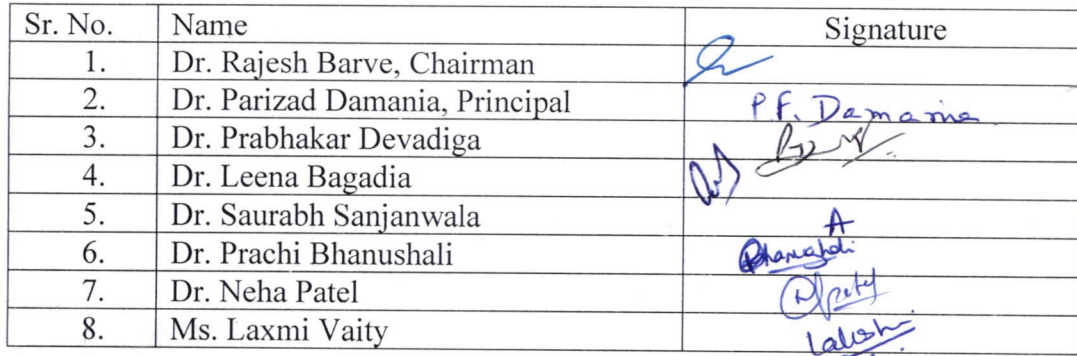 Sr. No. Name Signature
1. Dr. Rajesh Barve, Chairman
2. Dr. Parizad Damania, Principal P.F. Damania
3. Dr. Prabhakar Devadiga
4. Dr. Leena Bagadia
5. Dr. Saurabh Sanjanwala
6. Dr. Prachi Bhanushali
7. Dr. Neha Patel
8. Ms. Laxmi Vaity